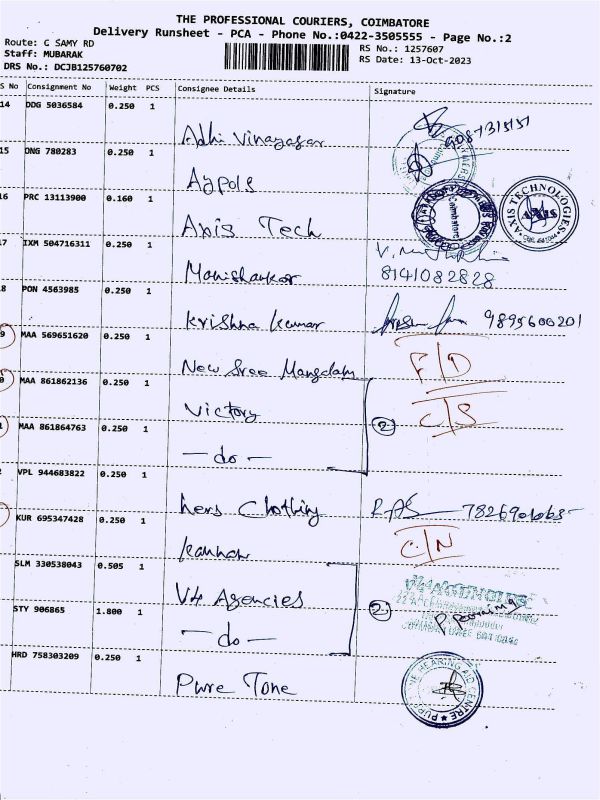 THE PROFESSIONAL COURIERS, COIMBATORE
Delivery Runsheet - PCA - Phone No.:0422-3505555 - Page No.:2
Route: C SAMY RD
Staff: MUBARAK
DRS No.: DCJB125760702
RS No.: 1257607
RS Date: 13-Oct-2023
S No Consignment No Weight PCS Consignee Details Signature
14 DDG 5036584 0.250 1
Adhi Vinayagar
15 DNG 780283 0.250 1
Aypols
16 PRC 13113900 0.160 1
Axis Tech
AXIS TECHNOLOGIES
AXIS
17 IXM 504716311 0.250 1
Manishankar 8141082828
8 PON 4563985 0.250 1
Krishna kumar 9895600201
9 MAA 569651620 0.250 1
New Sree Mangalam F/D
0 MAA 861862136 0.250 1
Victory C/S
2
1 MAA 861864763 0.250 1
- do -
VPL 944683822 0.250 1
hers Clothing RAS
KUR 695347428 0.250 1
Kannan C/N
SLM 330538043 0.505 1
V4 Agencies
V4 AGENCIES
2
STY 906865 1.800 1
- do -
HRD 758303209 0.250 1
Pure Tone
HEARING AID CENTRE